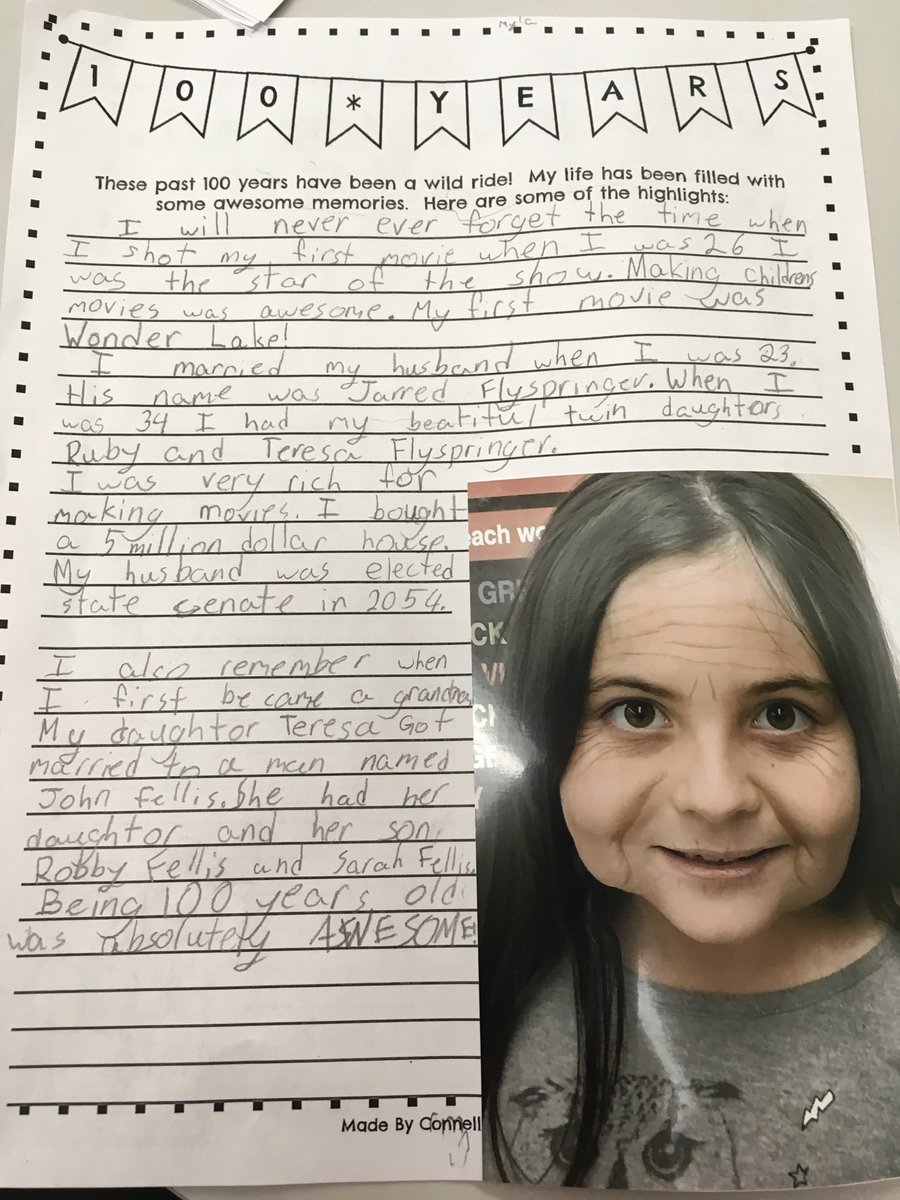 100*YEARS
These past 100 years have been a wild ride! My life has been filled with
some awesome memories. Here are some of the highlights:
I will never ever forget the time when
I shot my first movie when I was 26 I
was the star of the show. Making childrens
movies was awesome. My first movie was
Wonder Lake!
I married my husband when I was 23.
His name was Jarred Flyspringer. When I
was 34 I had my beatiful twin daughtors
Ruby and Teresa Flyspringer.
I was very rich for
making movies. I bought
a 5 million dollar house.
My husband was elected
state senate in 2054.
I also remember when
I first became a grandma
My daughtor Teresa Got
married to a man named
John Fellis. She had her
daughtor and her son.
Robby Fellis and Sarah Fellis.
Being 100 years old
was absolutely AWESOME!
Made By Connell
each wo
GR
CK